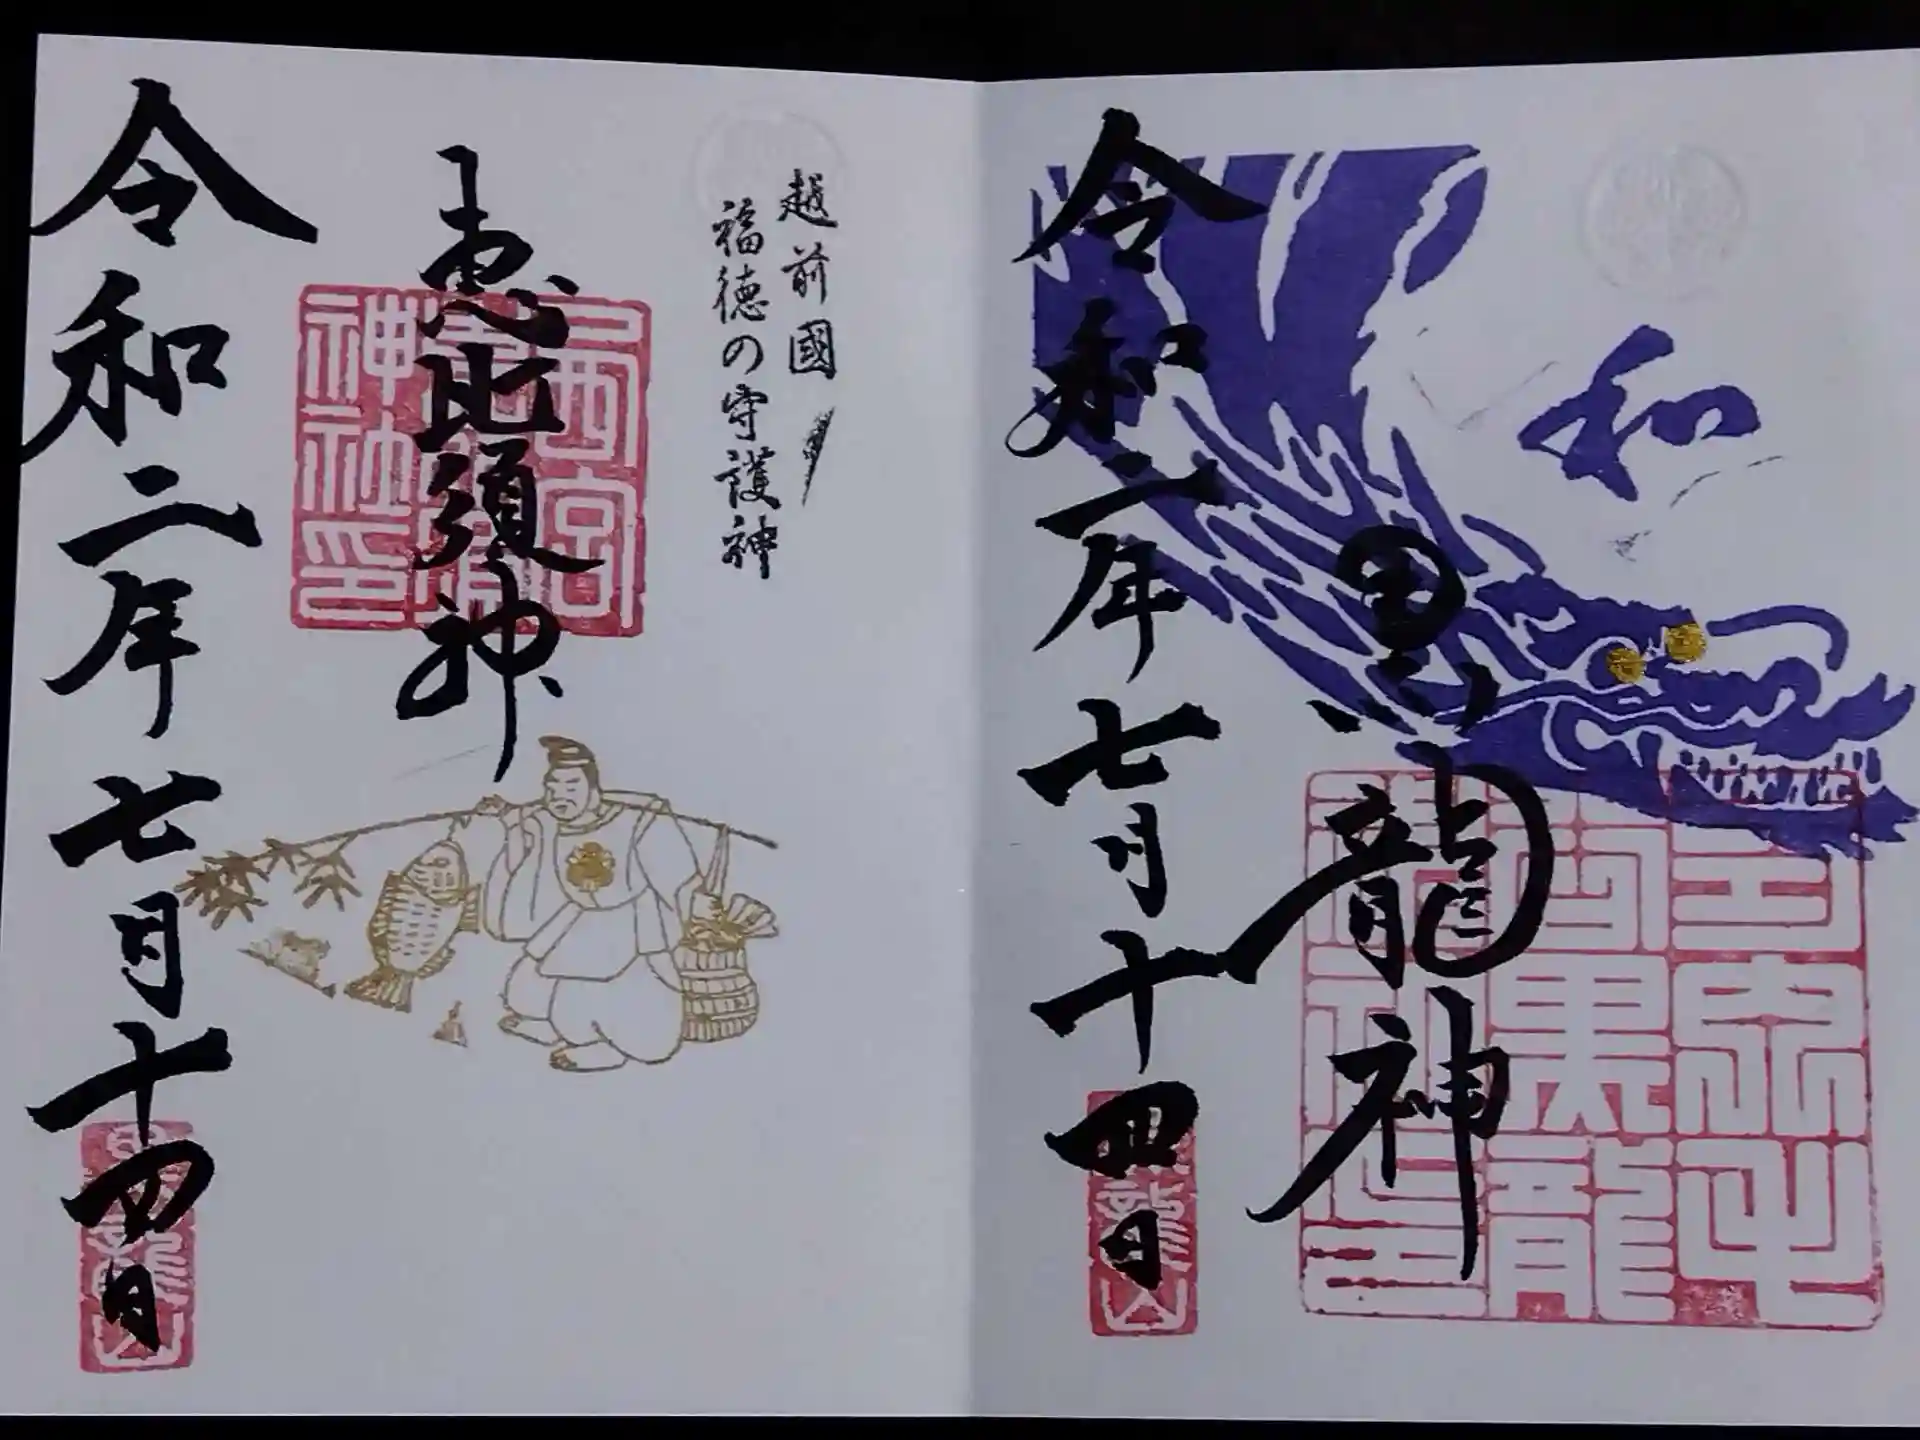 和
黒龍神
令和二年七月十四日
越前國
福徳の守護神
恵比須神
西宮
神社印
令和二年七月十四日